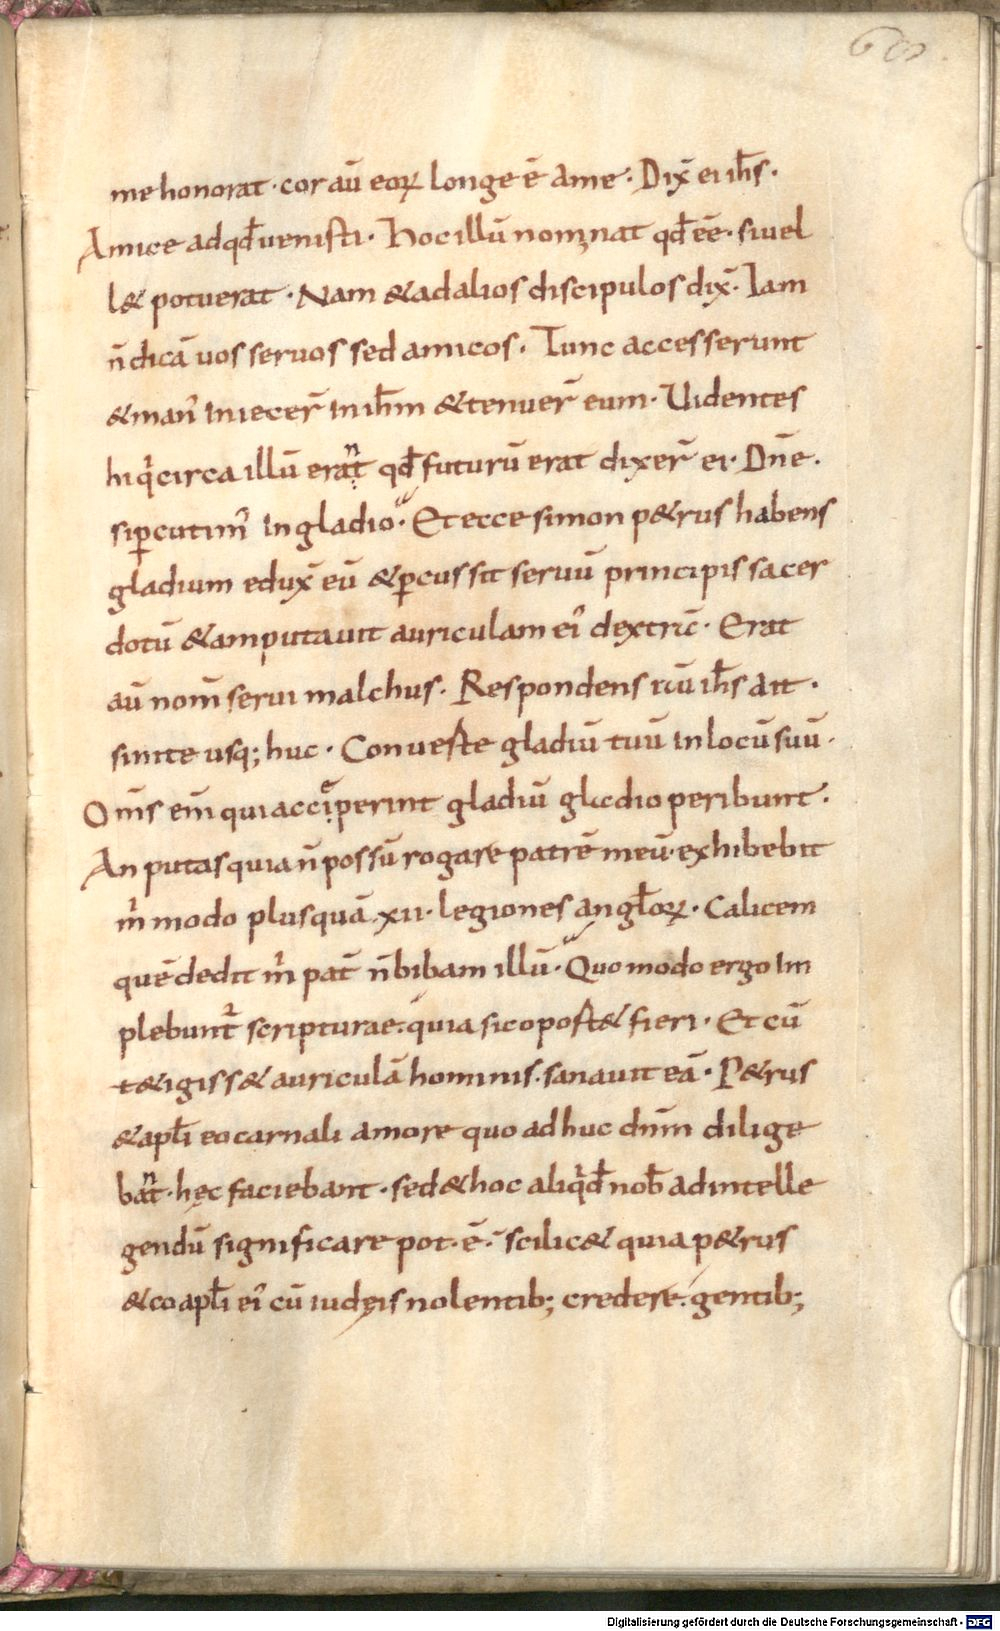 60
me honorat · cor aū eoꝝ longe ē ame · Dix̄ ei ih̄s ·
Amice adqd̄ uenisti · Hoc illū nominat qd̄ eē · siuel
l& potuerat · Nam &adalios discipulos dix̄ · Iam
n̄ dicā uos seruos sed amicos · Tunc accesserunt
&man᾽ iniecer̄ in ih̄m &tenuer̄ eum · Uidentes
hiq͛circa illū erant qd̄ futurū erat dixer̄ ei · Dn̄e ·
siꝑcutim᾽ In gladio · Et ecce simon p&rus habens
gladium edux̄ eū &ꝑcussit seruū principis sacer
dotū &amputauit auriculam ei᾽ dextrā · Erat
aū nom̄ serui malchus · Respondens aū ih̄s ait ·
sinite usq; huc · Conuerte gladiū tuū inlocū suū ·
Om̄s eni̅ qui acceperint gladiū gladio peribunt ·
An putas quia n̄ possū rogare patrē meū · exhibebit
m͛ modo plusquā xii · legiones angl̄oꝝ · Calicem
quē dedit m͛ pat̄ n̄ bibam illū · Quomodo ergo Im
plebunt᾽ scripturae · quia sic oport& fieri · Et cū
t&igiss& auriculā hominis · sanauit eā · P&rus
&apl̄i eo carnali amore quo adhuc dn̄m dilige
bant · hęc faciebant · sed &hoc aliq͛d nob̄ adintelle
gendū significare pot · ē · scilic& quia p&rus
&coapl̄i ei᾽ cū iudęis nolentib; credere · gentib;
Digitalisierung gefördert durch die Deutsche Forschungsgemeinschaft - DFG